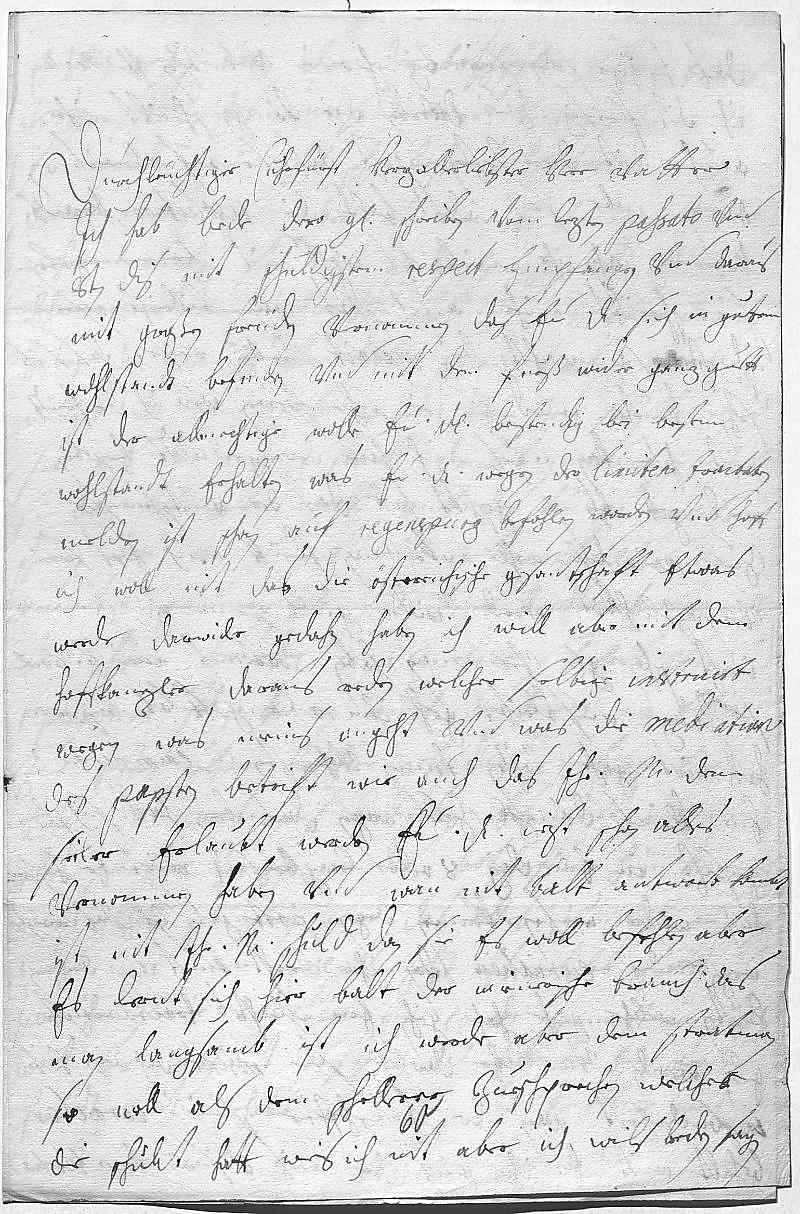 Durchleuchtigster Churfürst herzallerliebster herr Vatter
Ich hab beede dero gl. schreiben vom lezten passato vnd
8ten diß mit schuldigstem respect empfangen vnd daraus
mit grosten freuden vernommen das Eu D. sich in gutem
wohlstandt befinden vnd mit dem fueß wider ganz gutt
ist der allmechtige wolle Eu. Dl. bestendig bei bestem
wohlstandt erhalten was Eu. D. wegen der limiten tractaten
melden ist schon auf regenspurg befohlen worden vnd hoff
ich woll nit das die östereichische gesantschaft Etwas
werde darwider gedahn haben ich will aber mit dem
hoffkanzler daraus reden welcher selbige instruirt
wegen was meins angeht vnd was die mediation
des papsten betrifft wie auch das Ihr. M. dem
erlaubt worden Eu. D. iezt schon alles
vernommen haben vnd wan nit balt antwort kombt
ist nit Ihr. M. schuld dan sie Es woll befehlen aber
Es lernt sich hier balt der wienerische brauch das
man langsamb ist ich werde aber dem stratman
so woll als dem zusprechen welcher
die schult hatt weis ich nit aber ich wils beden sagen
60